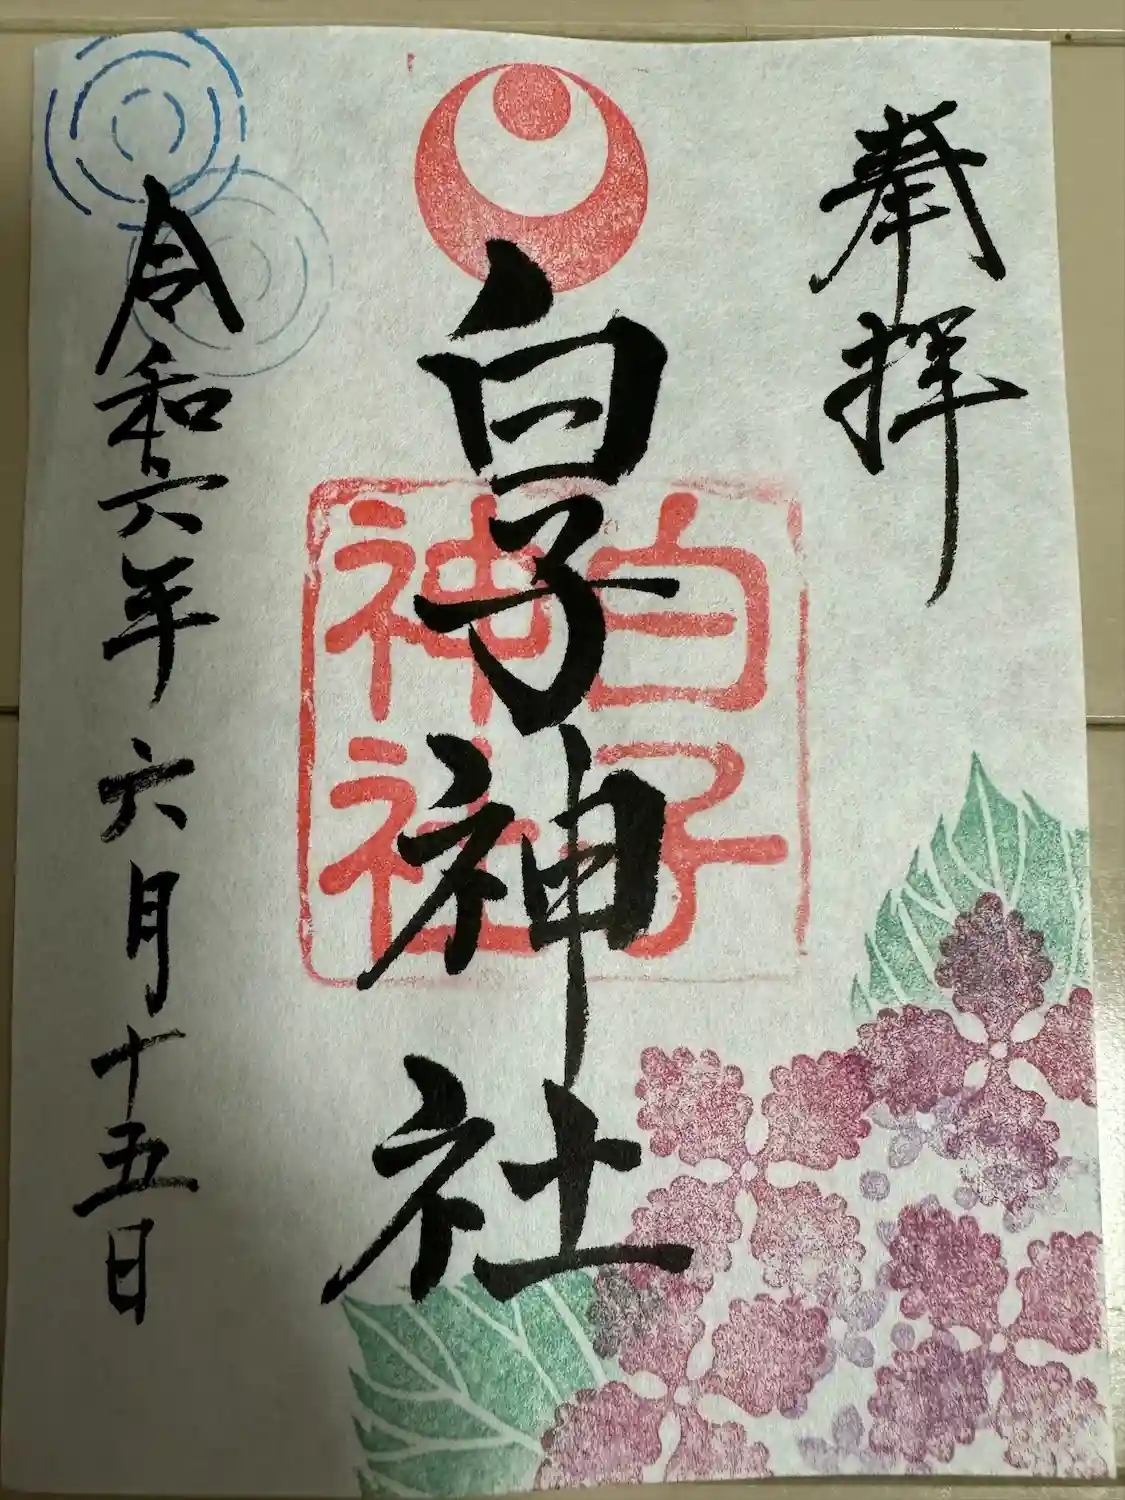 奉拝
白子神社
白子
神社
令和六年六月十五日